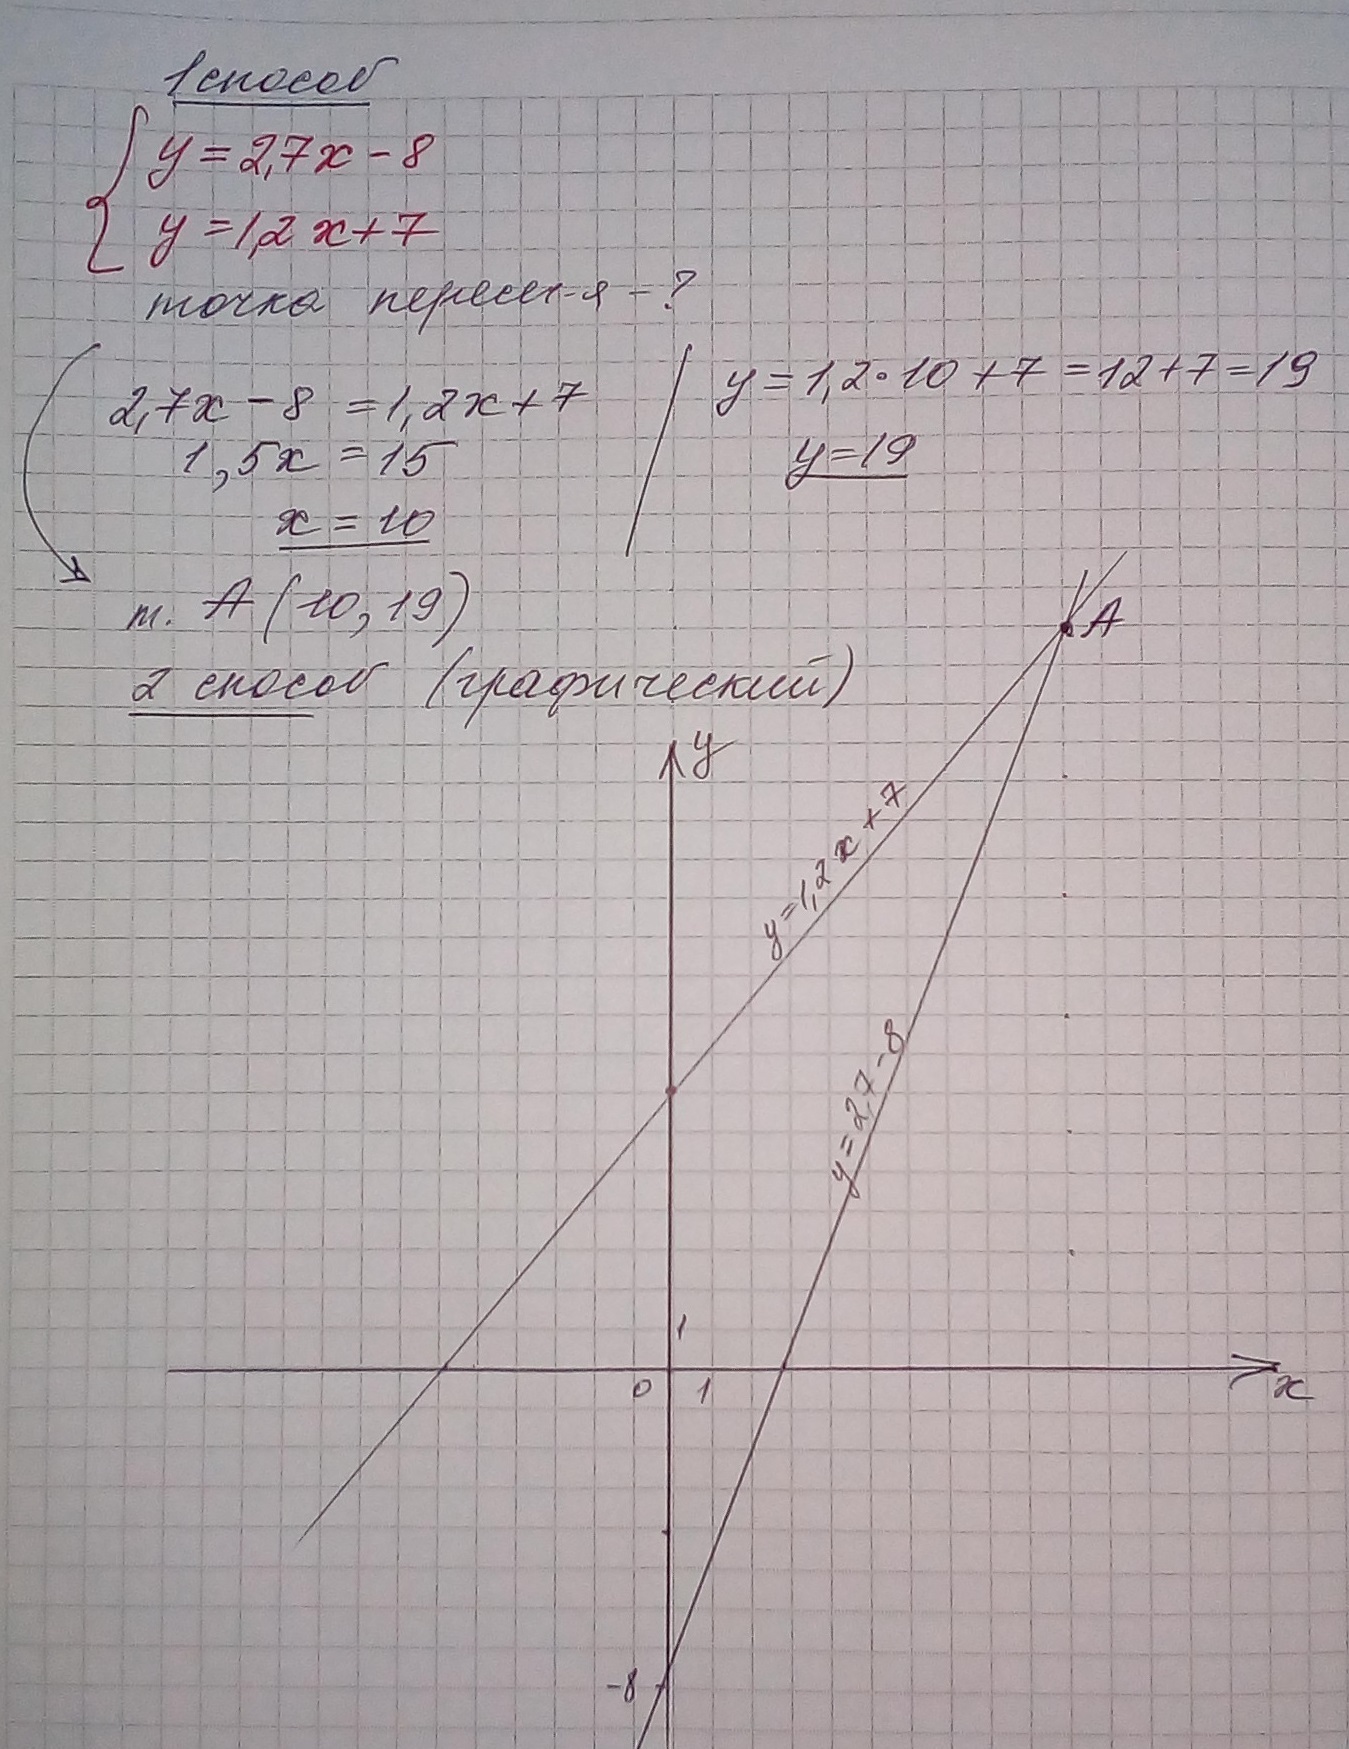 1 способ
y = 2,7x - 8
y = 1,2x + 7
точка пересеч-я - ?
2,7x - 8 = 1,2x + 7
1,5x = 15
x = 10
y = 1,2 · 10 + 7 = 12 + 7 = 19
y = 19
т. A (10, 19)
2 способ (графический)
A
y
y = 1,2x + 7
y = 2,7 - 8
1
0 1
x
-8